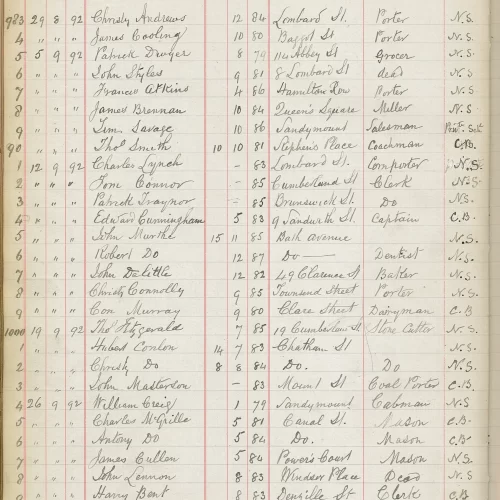 983 29 8 92 Christy Andrews 12 84 Lombard St. Porter N.S.
4 " " " James Cooling 10 80 Baggot St Porter N.S.
5 5 9 92 Patrick Dwyer 8 79 Abbey St Grocer N.S.
6 " " " John Styles 9 81 8 Lombard St dead N.S.
7 " " " Francis Atkins 4 86 Hamilton Row Porter N.S.
8 " " " James Brennan 10 84 Queen's Square Miller N.S.
9 " " " Tim Savage 10 86 Sandymount Salesman
90 " " " Thos Smith 10 10 81 Stephen's Place Coachman C.B.
1 12 9 92 Charles Lynch - 83 Lombard St. Comporter N.S.
2 " " " Tom Connor - 85 Cumberland St Clerk N.S.
3 " " " Patrick Traynor - 85 Brunswick St. Do N.S.
4 " " " Edward Cunningham 5 83 9 Sandwith St. Captain C.B.
5 " " " John Murtha 15 11 85 Bath Avenue N.S.
6 " " " Robert Do 12 87 Do Dentist N.S.
7 " " " John 12 82 49 Clarence St Baker N.S.
8 " " " Christy Connolly 9 85 Townsend Street Porter N.S.
9 " " " Con Murray 9 80 Clare Street Dairyman C.B
1000 19 9 92 Thos Fitzgerald 7 85 19 Cumberland St Stone Cutter N.S.
1 " " " Hubert Conlon 14 7 83 Chatham St N.S.
2 " " " Christy Do 8 8 84 Do. Do N.S.
3 " " " John Masterson - 83 Mount St Coal Porter C.B.
4 26 9 92 William Creig 1 79 Sandymount Cabman N.S
5 " " " Charles McGrille 5 81 Canal St. Mason C.B
6 " " " Antony Do 5 84 Do. Mason C.B
7 " " " James Cullen 5 84 Power's Court Mason N.S
8 " " " John Lennon 8 83 Windsor Place Dead N.S
9 " " " Harry Bent 8 83 Denzille St Clerk C.B